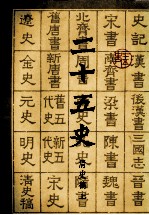 史記
漢書
後漢書
三國志
晉書
宋書
南齊書
梁書
陳書
魏書
北齊書
周書
二十五史
清史稿
舊唐書
新唐書
舊五代史
新五代史
宋史
遼史
金史
元史
明史
清史稿